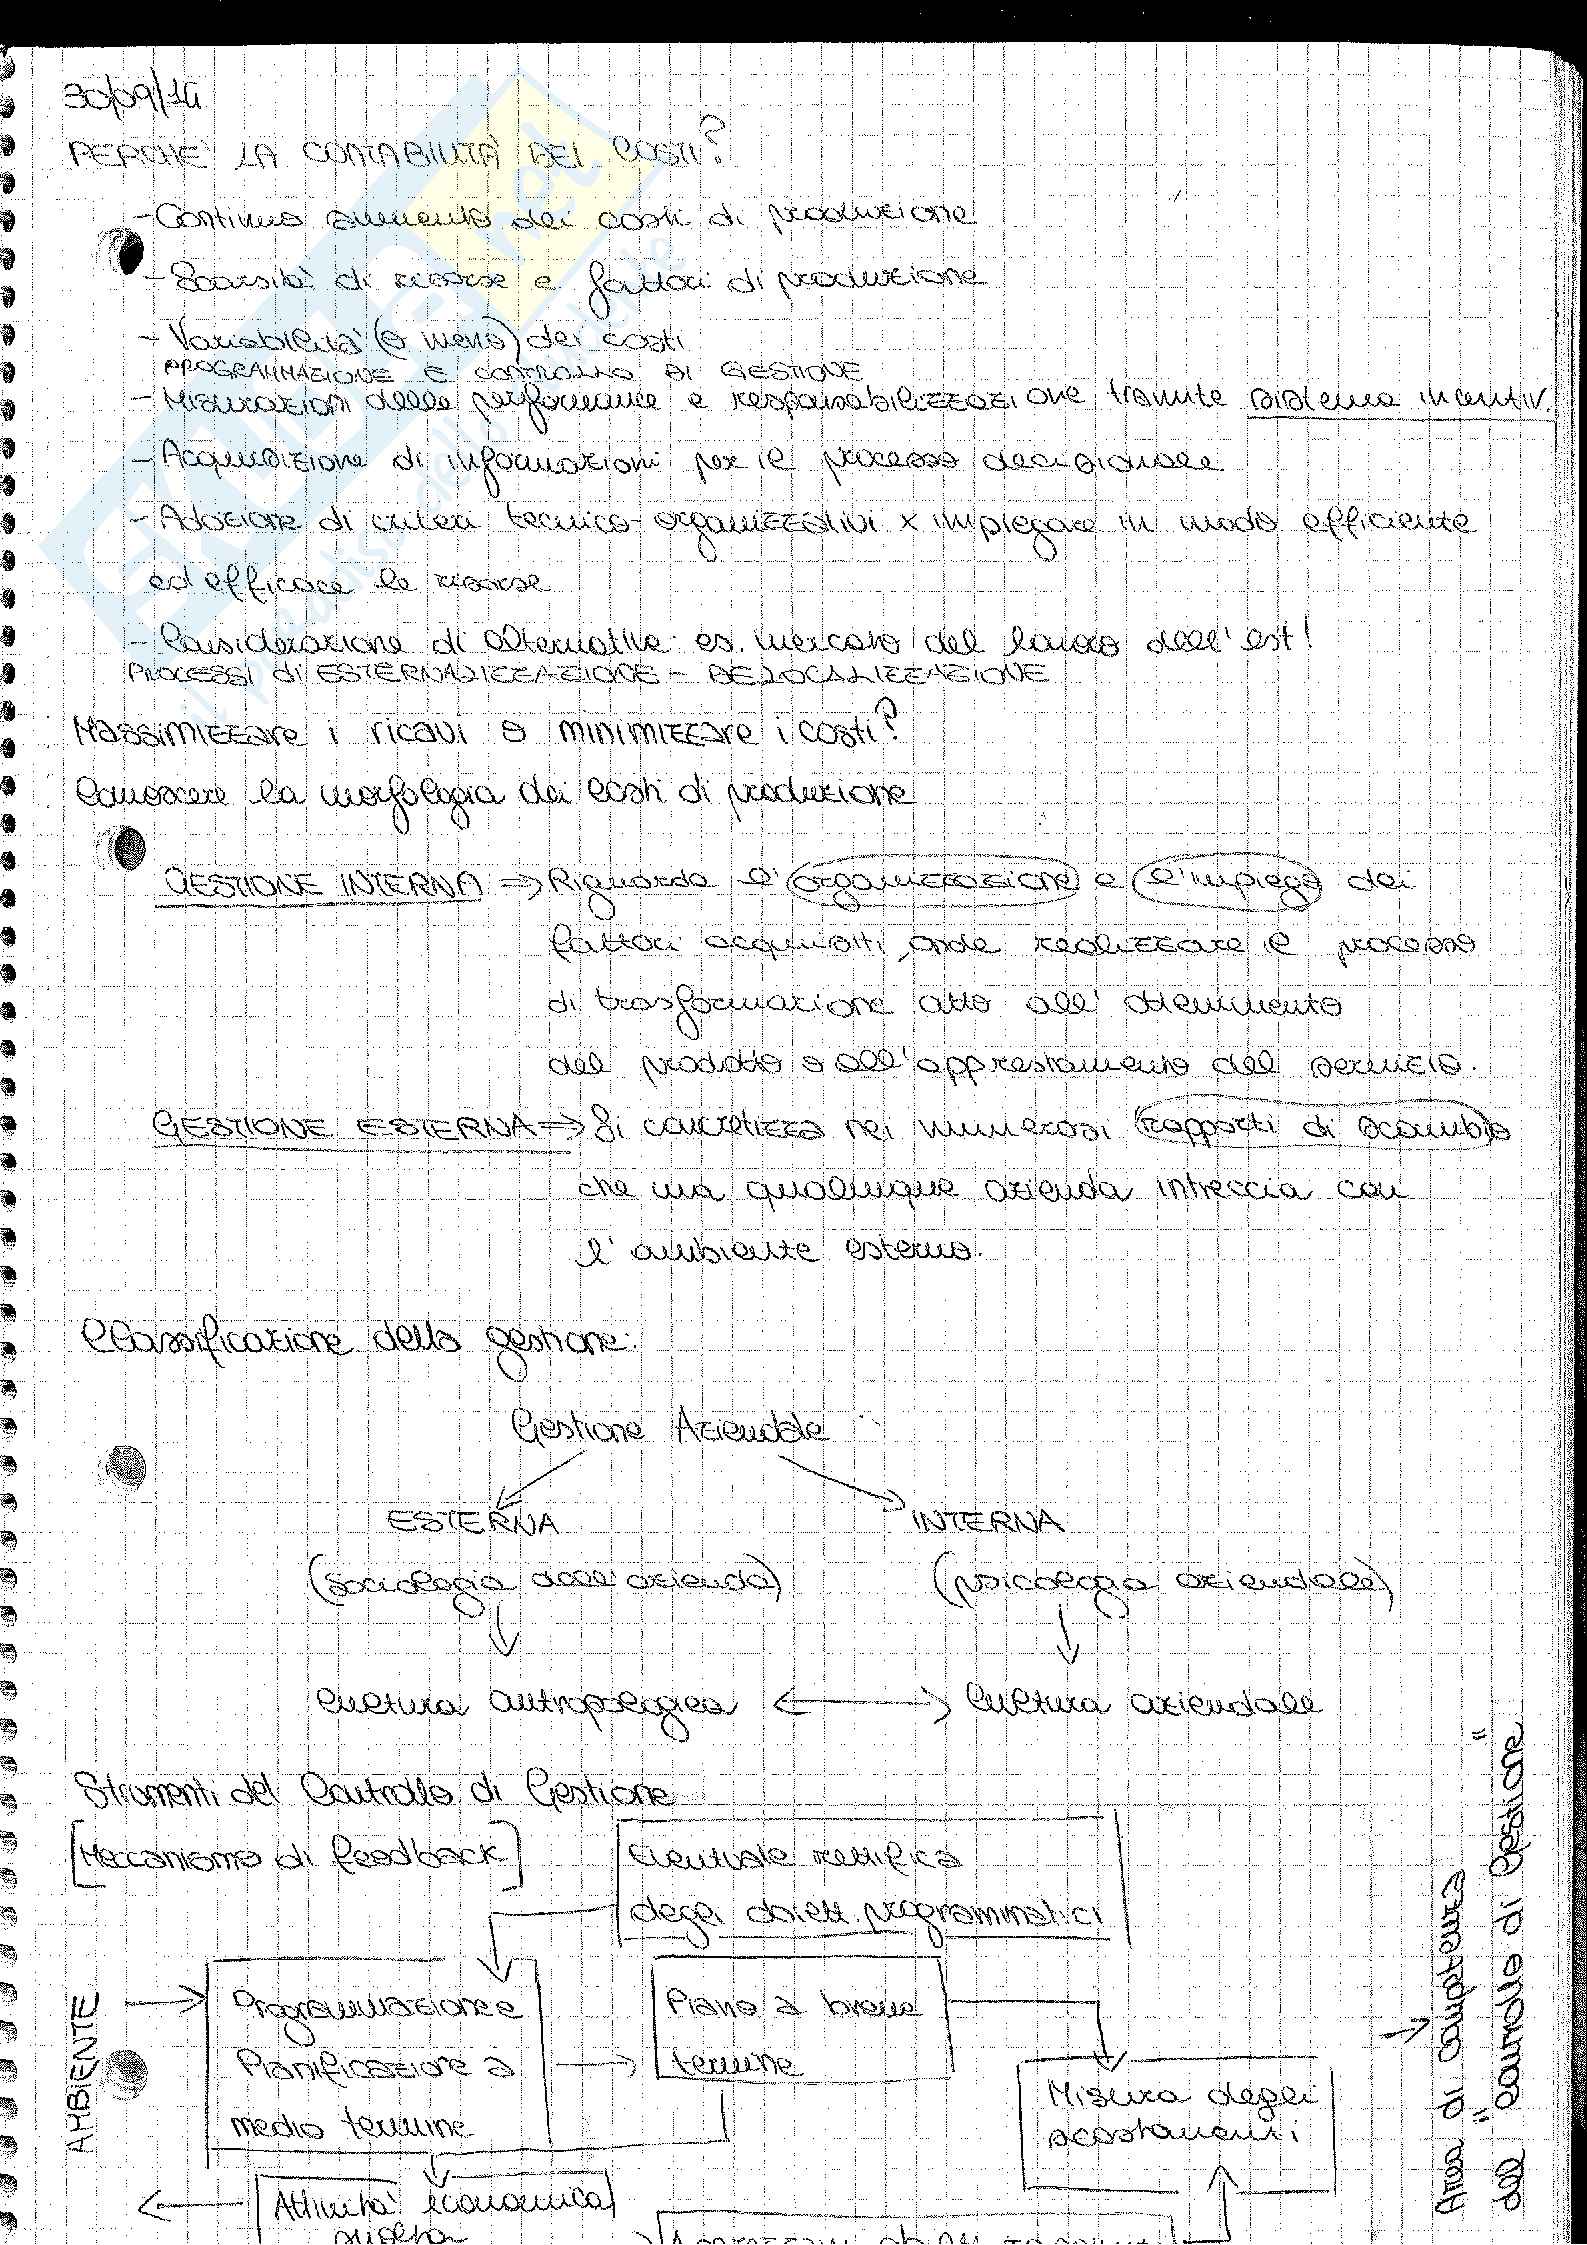 30/09/14
PERCHE' LA CONTABILITÀ DEI COSTI?
- Continuo aumento dei costi di produzione
- Scarsità di risorse e fattori di produzione
- Variabilità (o meno) dei costi
PROGRAMMAZIONE E CONTROLLO DI GESTIONE
- Misurazioni delle performance e responsabilizzazione tramite sistema incentiv.
- Acquisizione di informazioni per il processo decisionale
- Adozione di criteri tecnico-organizzativi x impiegare in modo efficiente
ed efficace le risorse
- Considerazione di alternative es. mercato del lavoro dell'est!
PROCESSI di ESTERNALIZZAZIONE - DELOCALIZZAZIONE
Massimizzare i ricavi o minimizzare i costi?
Conoscere la morfologia dei costi di produzione
GESTIONE INTERNA => Riguarda l'organizzazione e l'impiego dei
fattori acquisiti, onde realizzare il processo
di trasformazione atto all'ottenimento
del prodotto o all'apprestamento del servizio.
GESTIONE ESTERNA => Si concretizza nei numerosi rapporti di scambio
che una qualunque azienda intreccia con
l'ambiente esterno.
Classificazione della gestione:
Gestione Aziendale
ESTERNA INTERNA
(sociologia dell'azienda) (psicologia aziendale)
Cultura antropologica <-> Cultura aziendale
Strumenti del Controllo di Gestione
[Meccanismo di feedback]
Eventuale rettifica
degli obiett. programmatici
AMBIENTE
Programmazione e
Pianificazione a
medio termine
Piano a breve
termine
Misura degli
scostamenti
Attività economica
svolta
Area di competenza
del "controllo di Gestione"